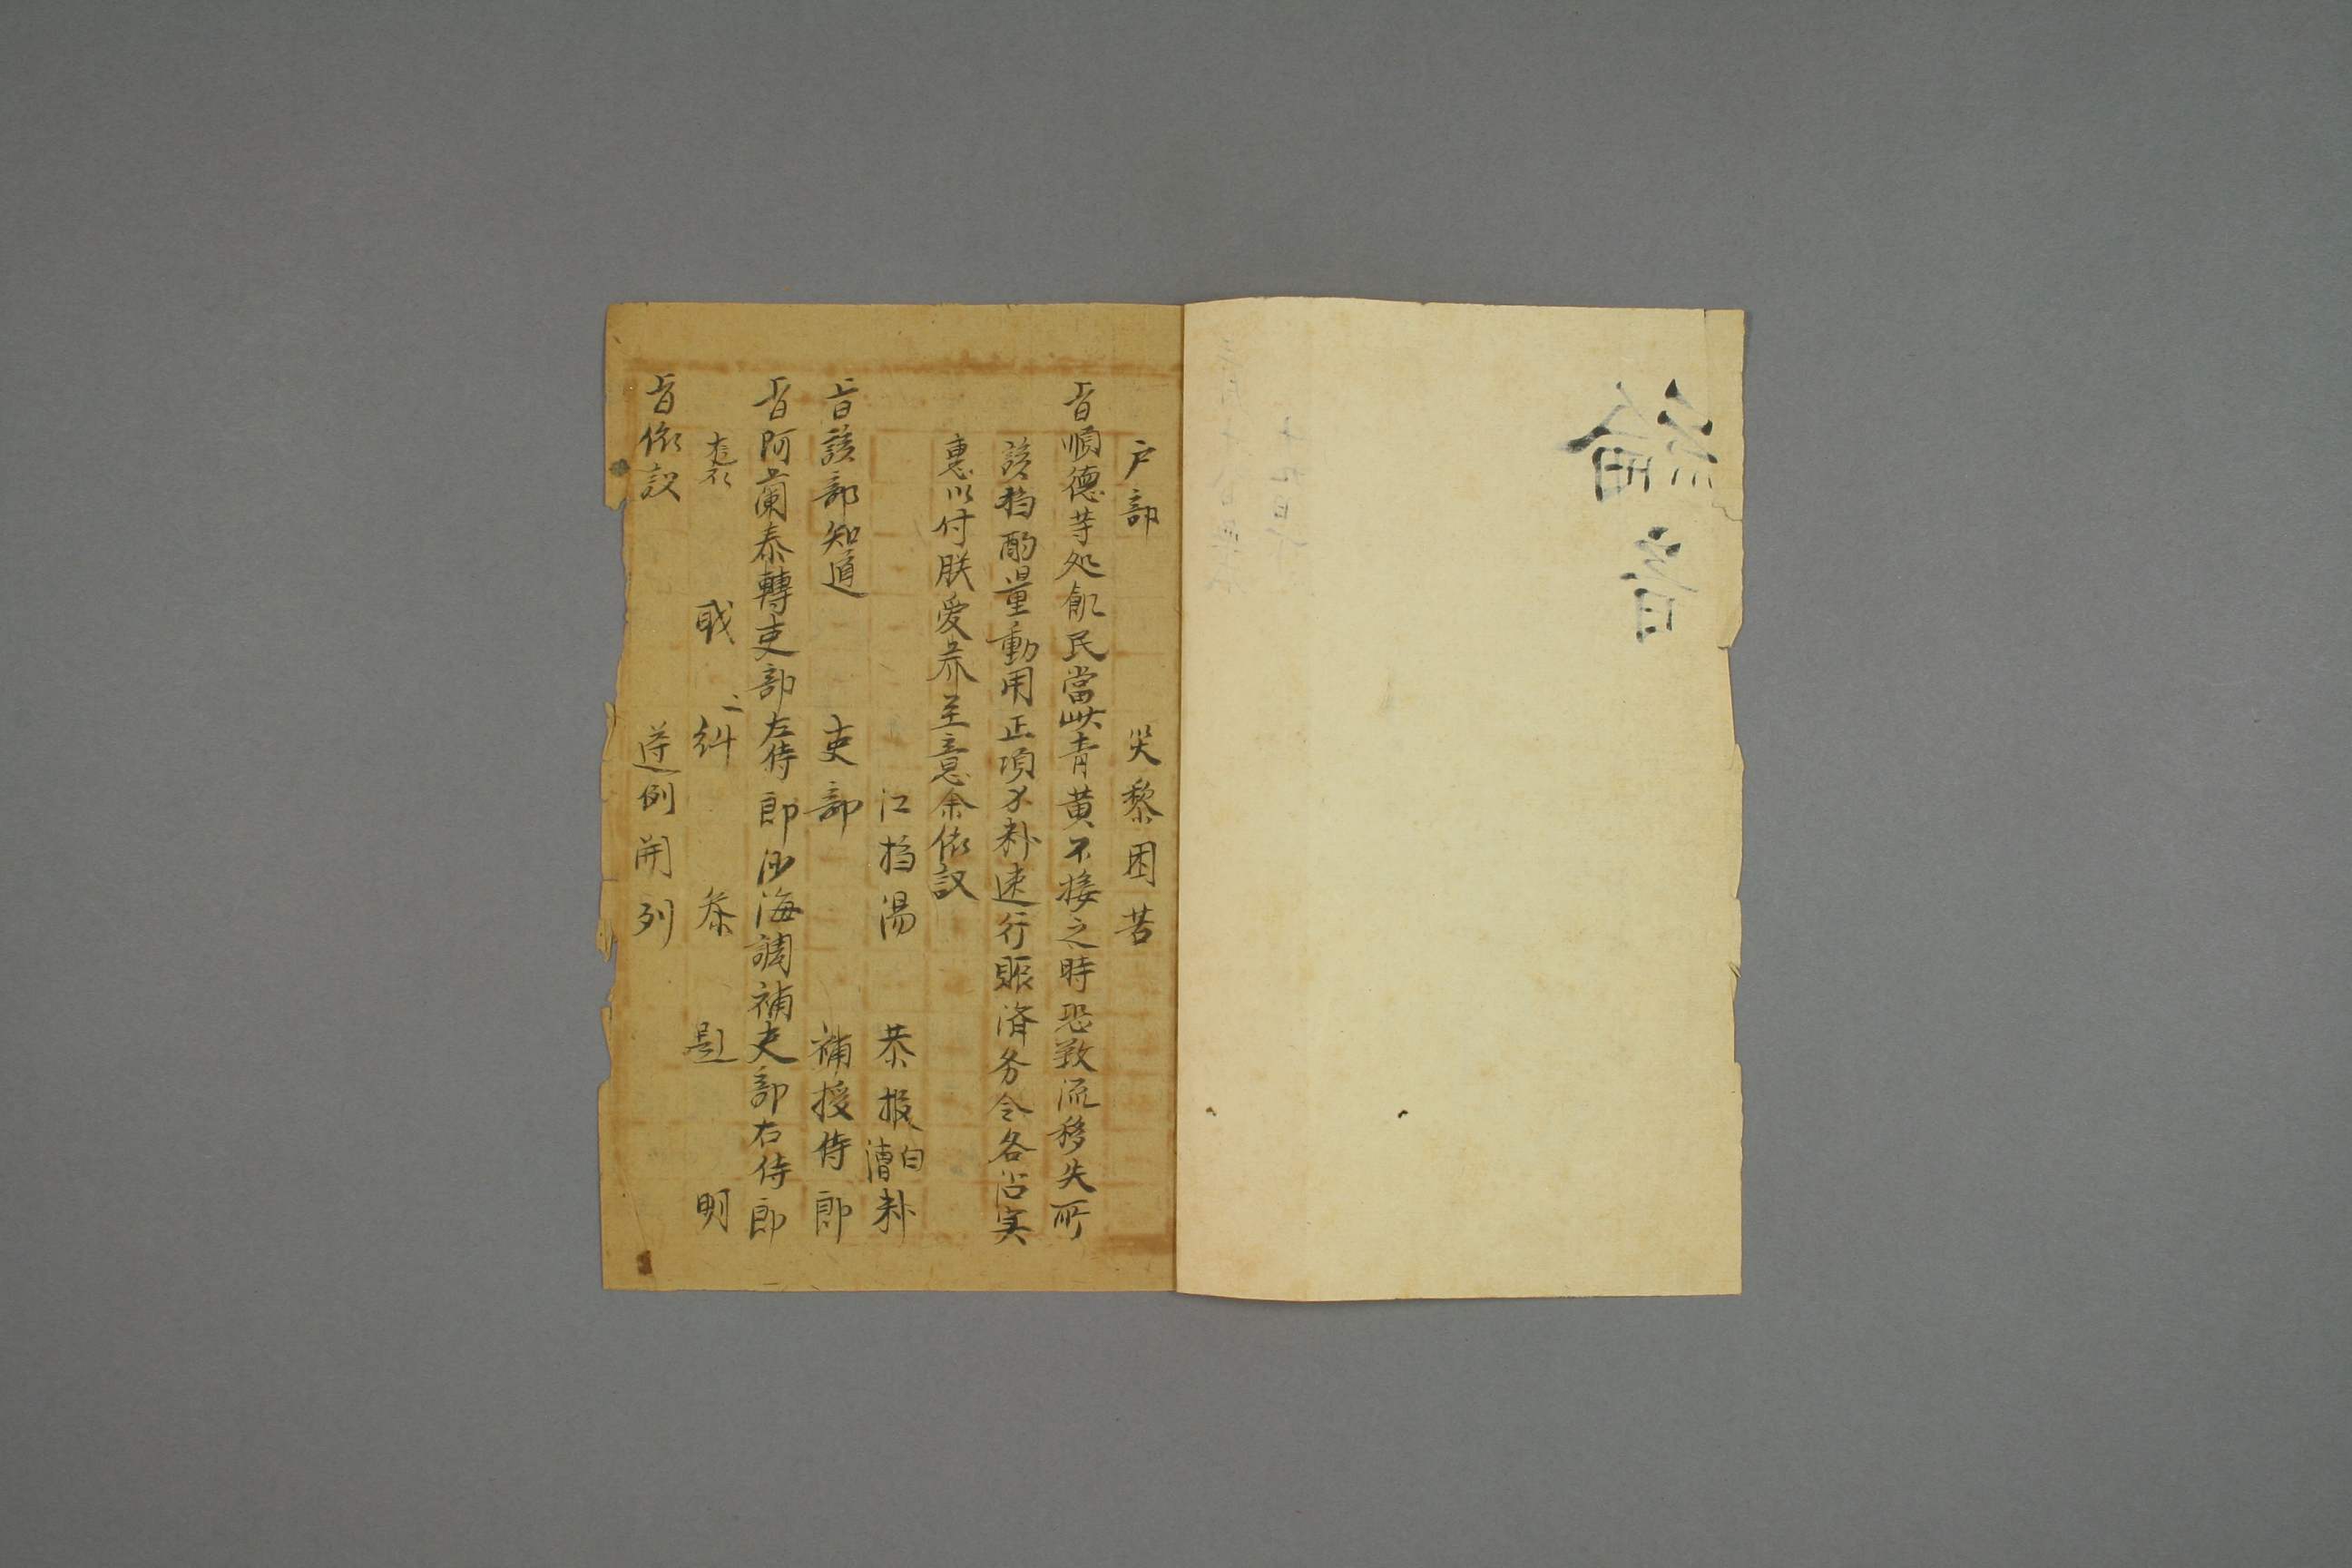 綸音
户部 災黎困苦
旨順德等処飢民當此青黃不接之時恐致流移失所
該档酌量動用正項才料速行賑済务令各沾実
惠以付朕爱养至意余依议
江档湯 恭报白漕料
旨該部知道 吏部 補授侍郎
旨阿蘭泰轉吏部左侍郎沙海調補吏部右侍郎
糾 参 題 明
旨依议 遵例開列